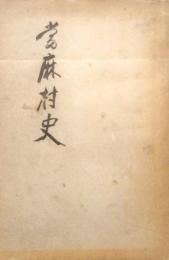 當麻村史